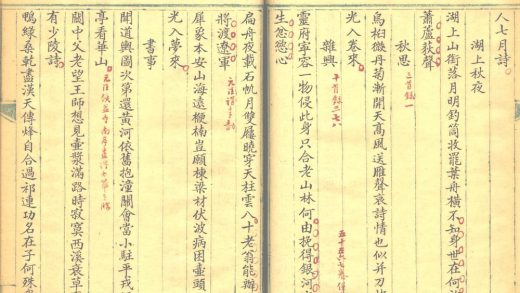 人七月詩
湖上秋夜
湖上山銜落月明釣筒收罷葉舟橫不知身世在何
蕭蘆荻聲
秋思 三首錄一
烏桕微丹菊漸開天高風送雁聲哀詩情也似并刀
光入卷來
雜興 十首錄二七八
靈府寧容一物侵此身只合老山林何由挽得銀河
生忿慾心
扁舟夜載石帆月雙屨曉穿天柱雲八十老翁能辦
將渡遼軍
犀象本安山海遠楩楠豈願棟梁材伏波病困壺頭
光入夢來
書事
聞道輿圖次第還黃河依舊抱潼關會當小駐平戎
亭看華山
關中父老望王師想見壺漿滿路時寂寞西溪衰草
有少陵詩
鴨綠桑乾盡漢天傳烽自合過祁連功名在子何殊